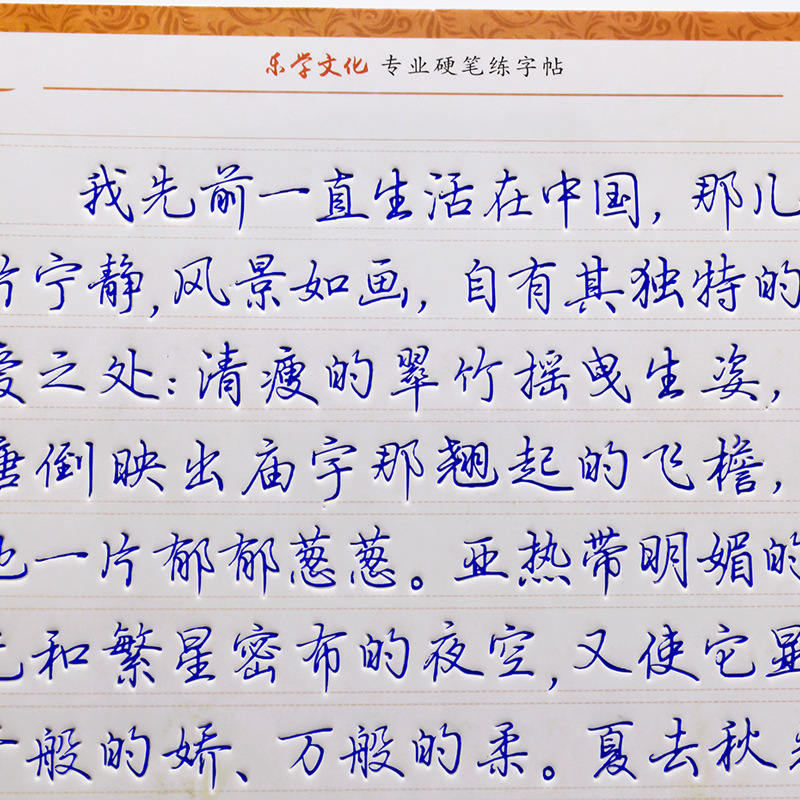 乐学文化 专业硬笔练字帖
我先前一直生活在中国,那儿
宁静,风景如画,自有其独特的
爱之处:清瘦的翠竹摇曳生姿,
塘倒映出庙宇那翘起的飞檐,
也一片郁郁葱葱。亚热带明媚的
光和繁星密布的夜空,又使它显
千般的娇、万般的柔。夏去秋来